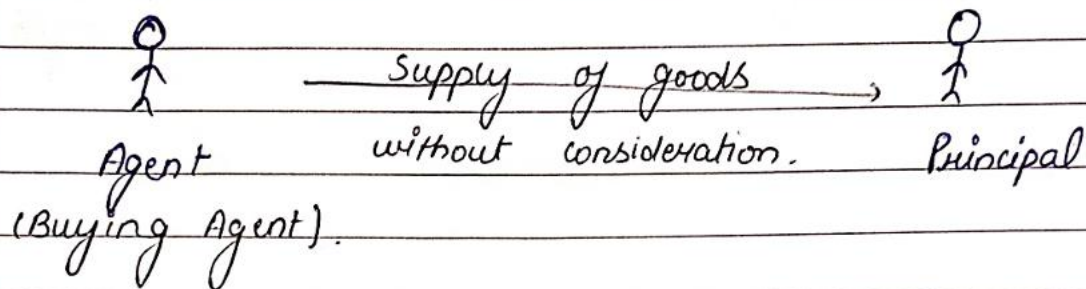 Supply of goods
without consideration.
Agent Principal
(Buying Agent).